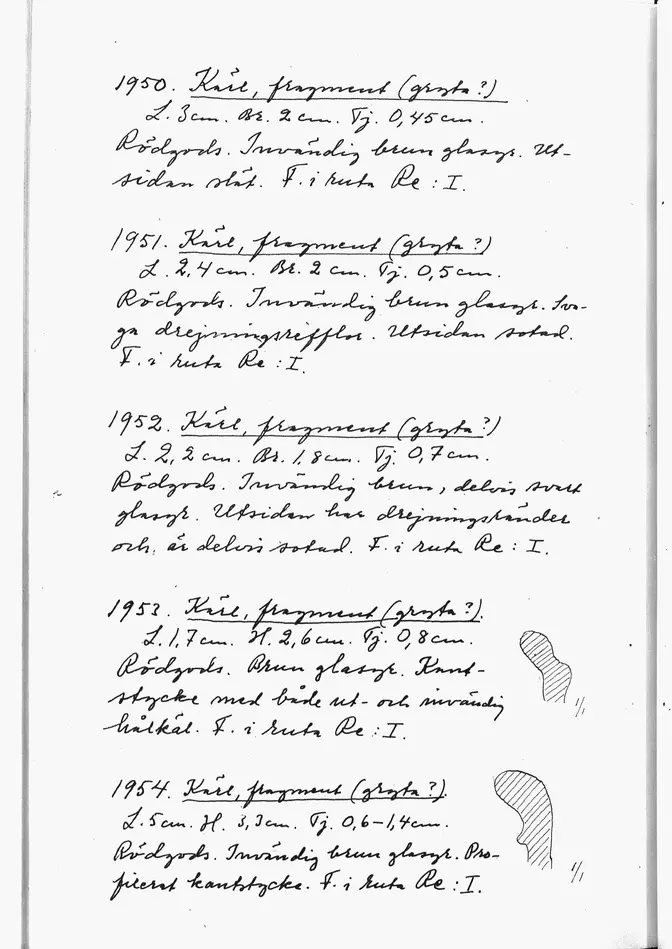 1950. Kärl, fragment (gryta?)
L. 3cm. Br. 2cm. Tj. 0,45cm.
Rödgods. Invändig brun glasyr. Ut-
sidan slät. F. i ruta Re : I.
1951. Kärl, fragment (gryta?)
L. 2,4cm. Br. 2cm. Tj. 0,5cm.
Rödgods. Invändig brun glasyr. Sva-
ga drejningsrifflor. Utsidan sotad.
F. i ruta Re : I.
1952. Kärl, fragment (gryta?)
L. 2,2cm. Br. 1,8cm. Tj. 0,7cm.
Rödgods. Invändig brun, delvis svart
glasyr. Utsidan har drejningsränder
och är delvis sotad. F. i ruta Re : I.
1953. Kärl, fragment (gryta?).
L. 1,7cm. H. 2,6cm. Tj. 0,8cm.
Rödgods. Brun glasyr. Kant-
stycke med både ut- och invändig
hålkäl. F. i ruta Re : I.
1/1
1954. Kärl, fragment (gryta?).
L. 5cm. H. 3,3cm. Tj. 0,6-1,4cm.
Rödgods. Invändig brun glasyr. Pro-
filerat kantstycke. F. i ruta Re : I.
1/1